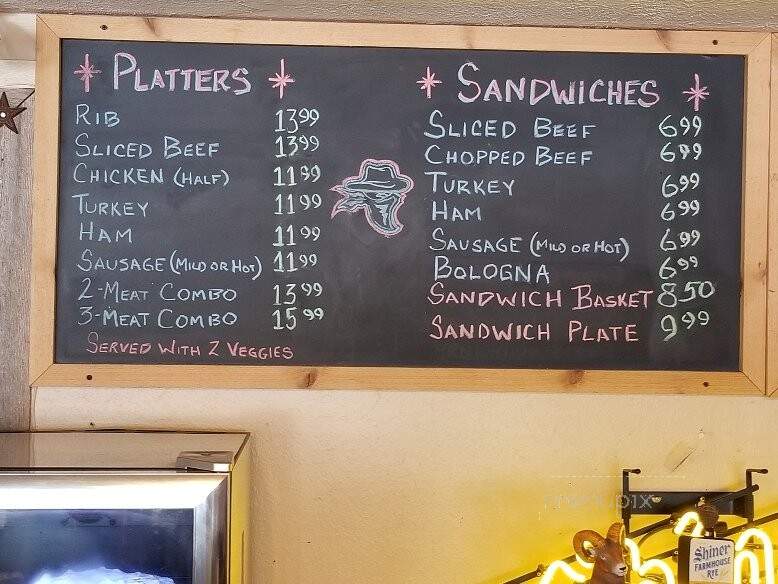 PLATTERS
RIB 13.99
SLICED BEEF 13.99
CHICKEN (HALF) 11.99
TURKEY 11.99
HAM 11.99
SAUSAGE (MILD OR HOT) 11.99
2-MEAT COMBO 13.99
3-MEAT COMBO 15.99
SERVED WITH 2 VEGGIES
SANDWICHES
SLICED BEEF 6.99
CHOPPED BEEF 6.99
TURKEY 6.99
HAM 6.99
SAUSAGE (MILD OR HOT) 6.99
BOLOGNA 6.99
SANDWICH BASKET 8.50
SANDWICH PLATE 9.99
Shiner
FARMHOUSE
RYE